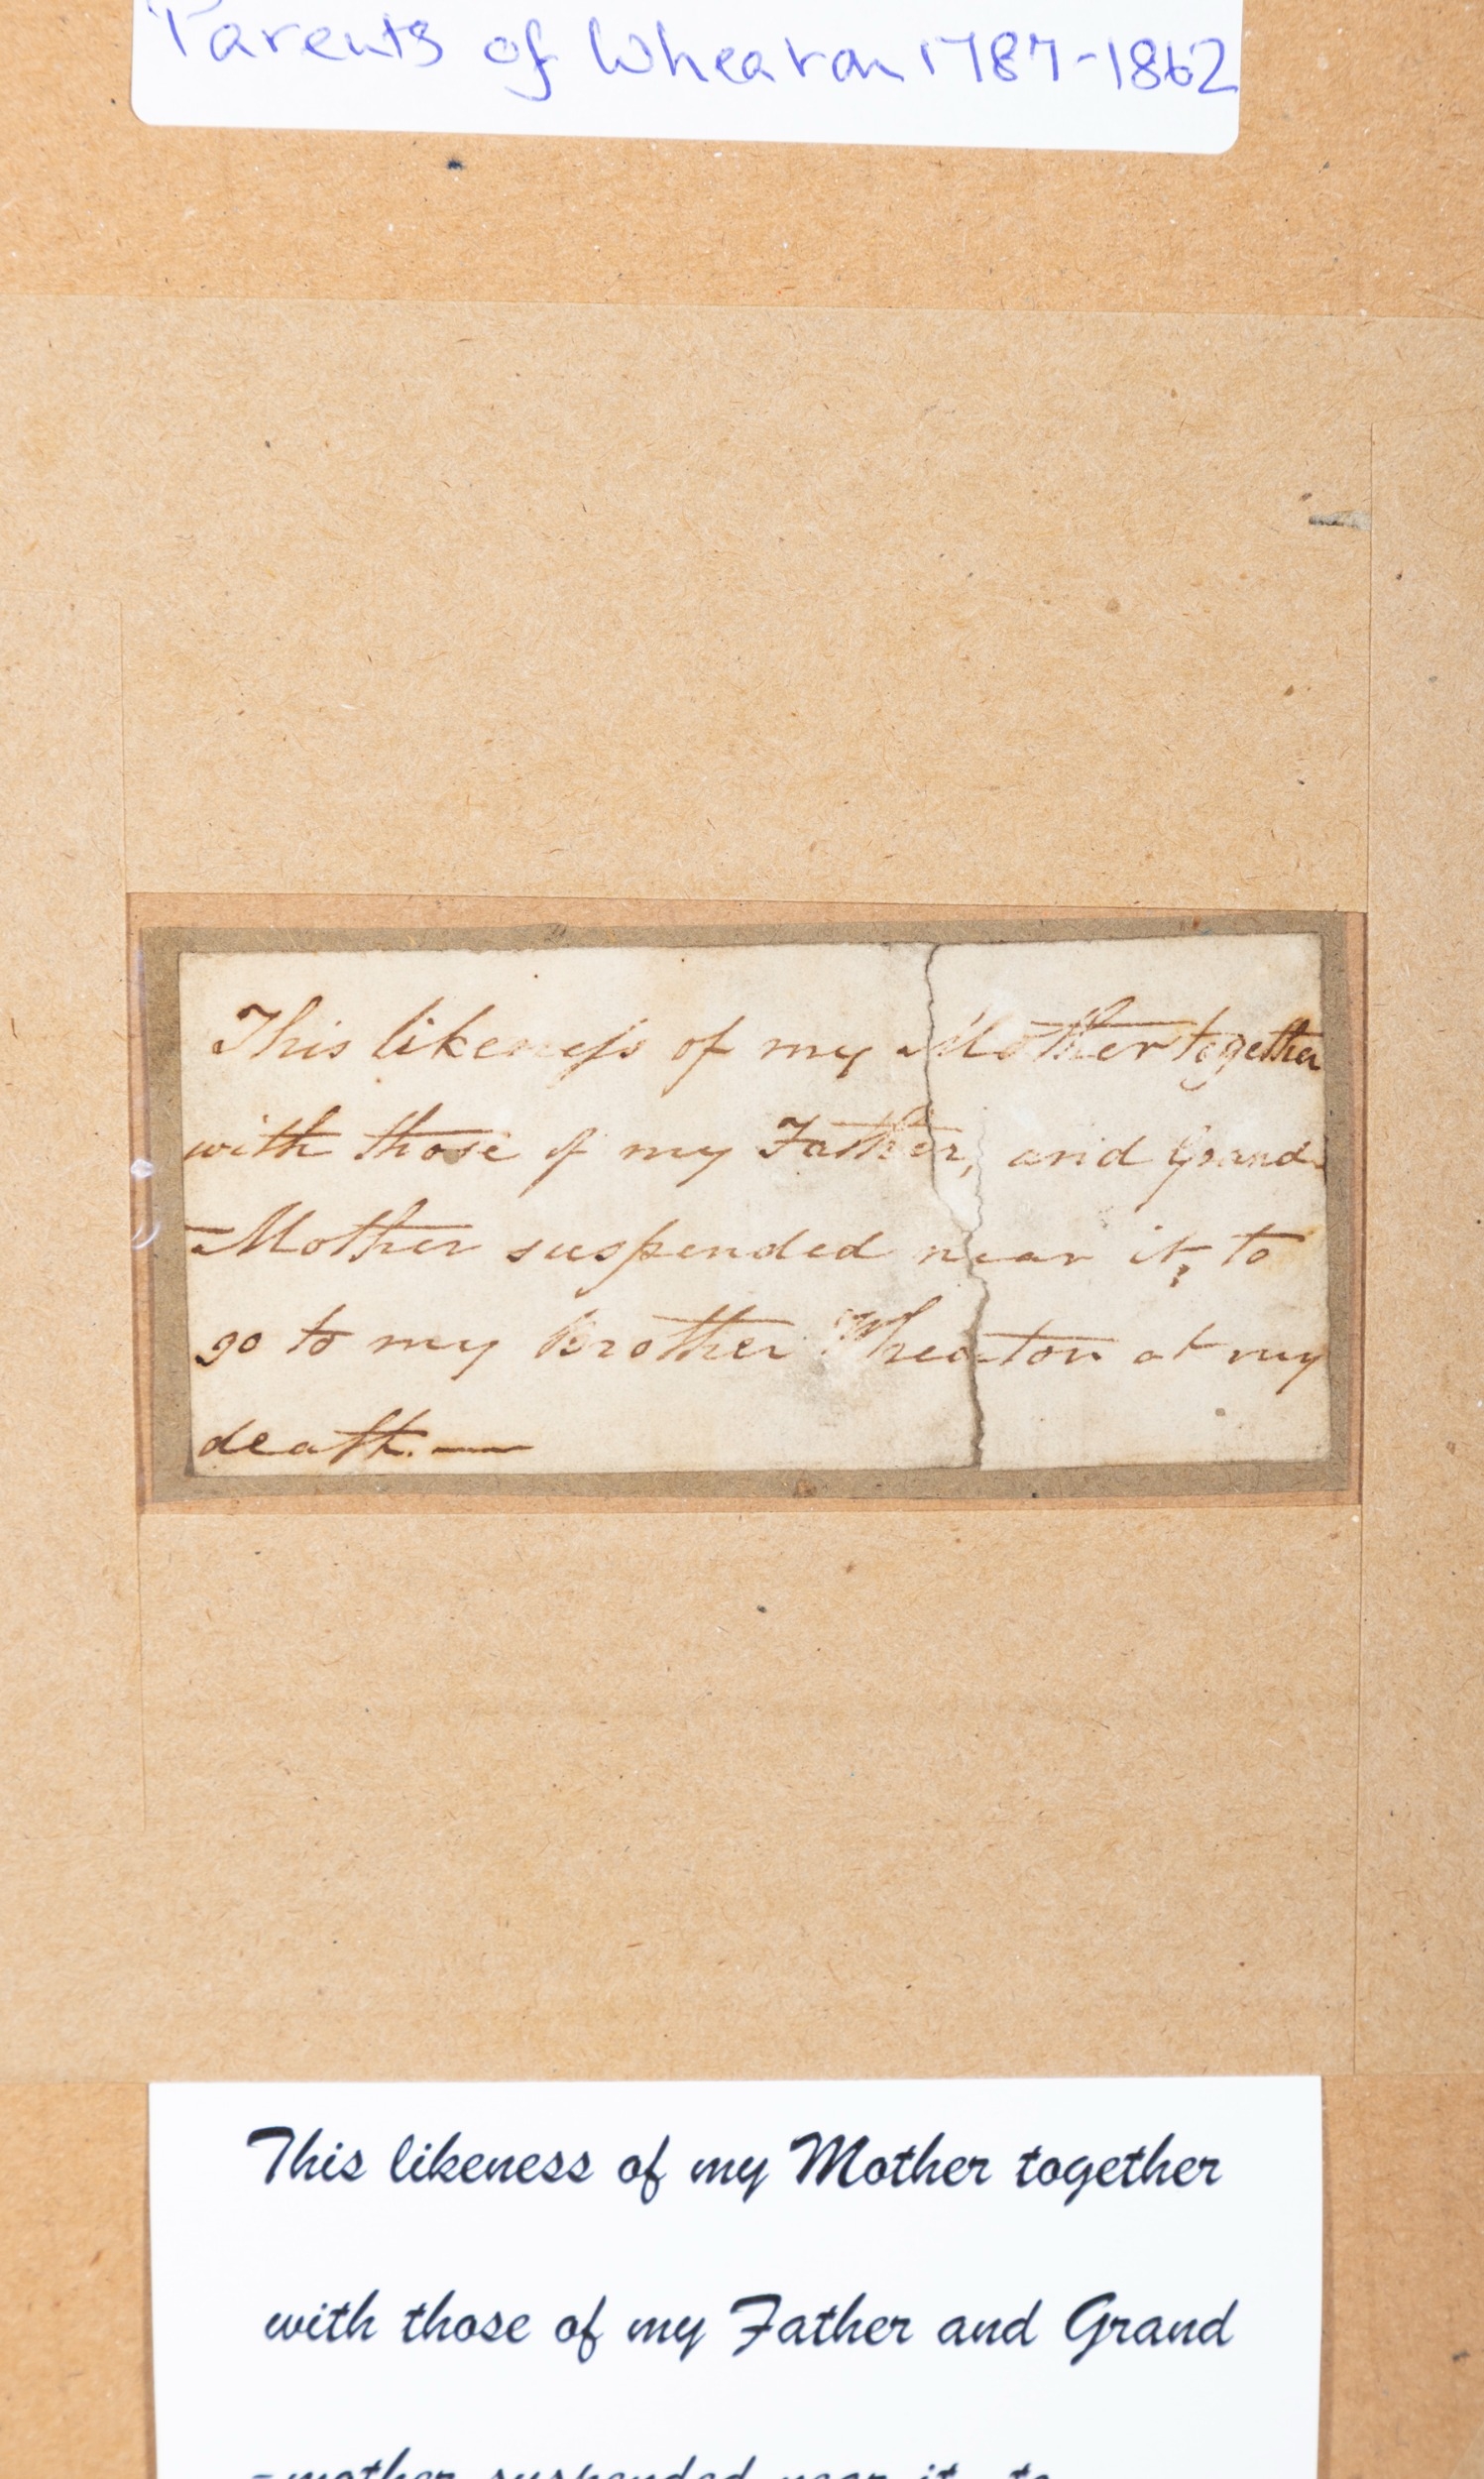 Parents of Whearon 1787-1862
This likeness of my Mother together
with those of my Father, and Grand
-Mother suspended near it, to
go to my Brother Wheaton at my
death.—
This likeness of my Mother together
with those of my Father and Grand
-mother suspended near it, to